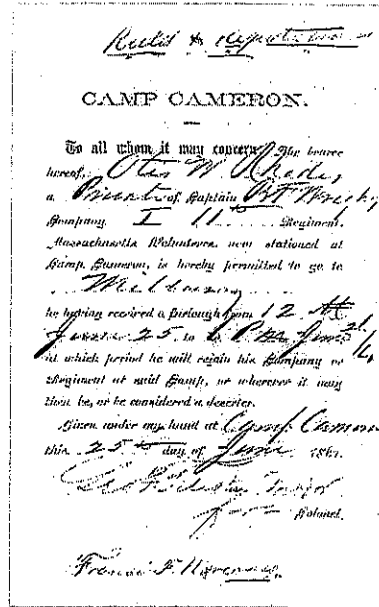 Rules & regulations
CAMP CAMERON.
To all whom it may concern: The bearer
hereof, Otis W. Rhodes,
a Private of Captain
Company I 11th Regiment,
Massachusetts Volunteers, now stationed at
Camp Cameron, is hereby permitted to go to
he having received a furlough from 12 M
June 25 to 6 P.M. June
at which period he will rejoin his Company or
Regiment at said Camp, or wherever it may
then be, or be considered a deserter.
Given under my hand at Camp Cameron
this 25th day of June 1861.
Major
Colonel.
Francis F.